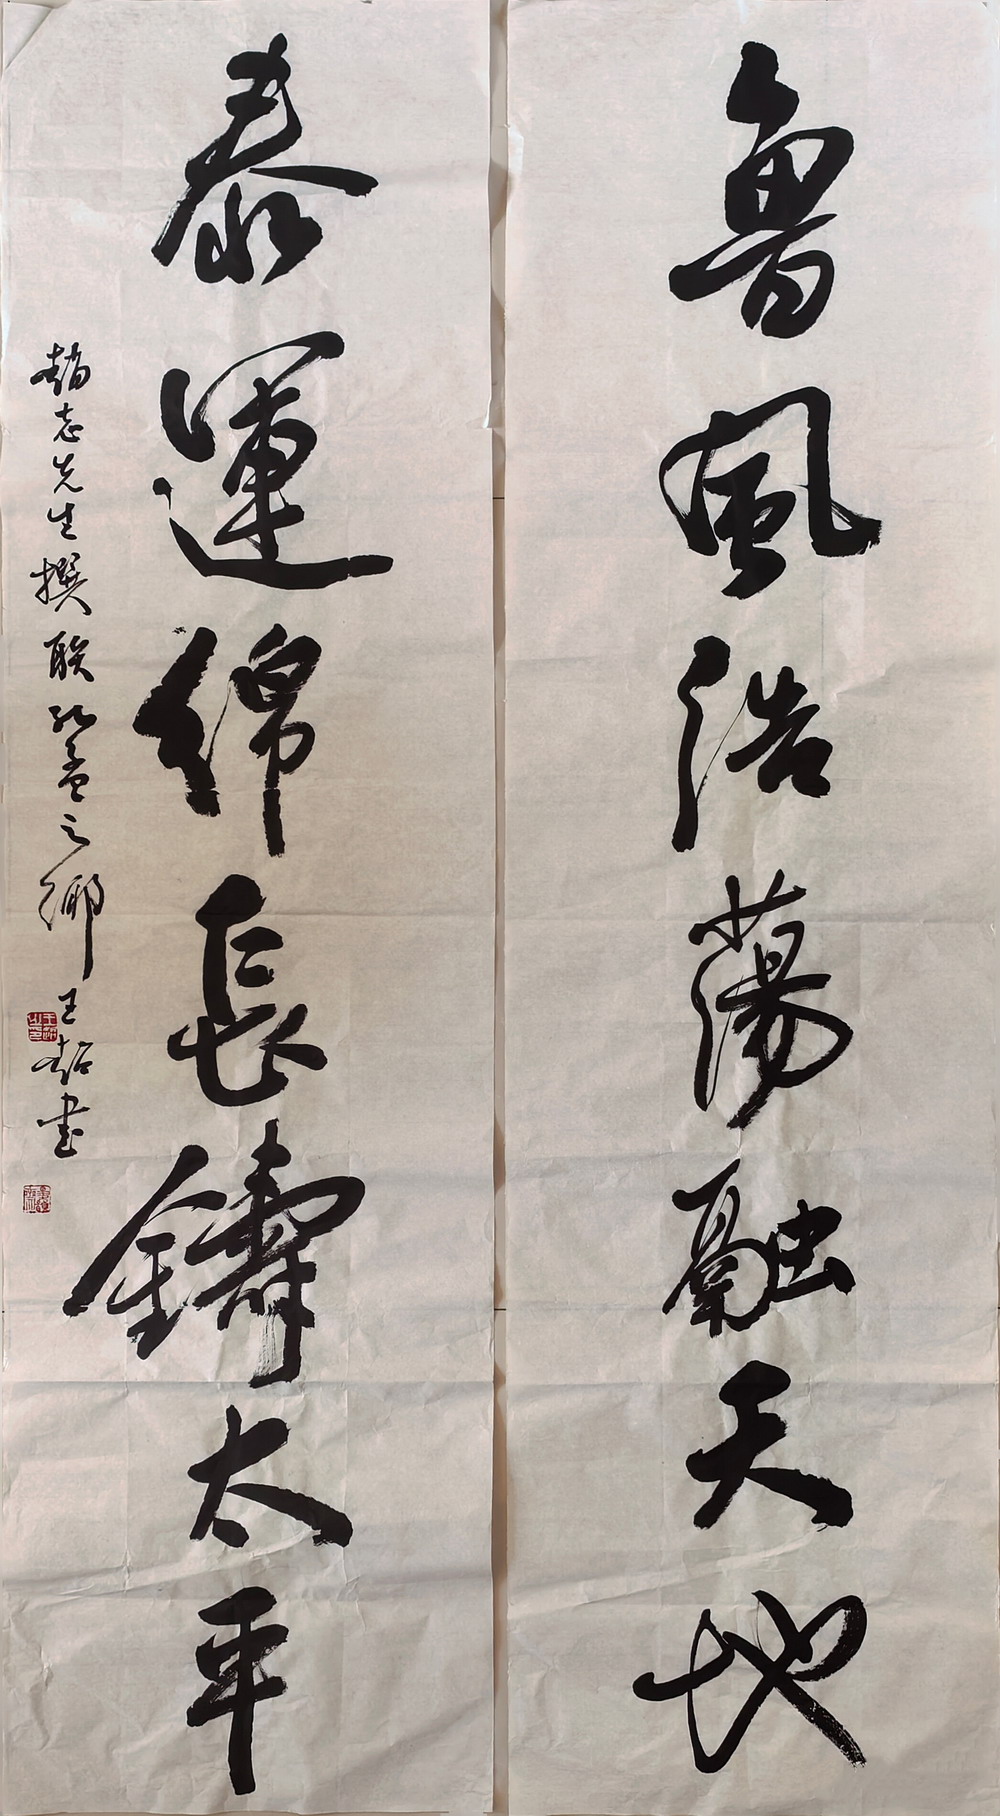 魯風浩蕩融天地
泰運綿長鑄太平
趙志先生撰联孔孟之鄉王喆書